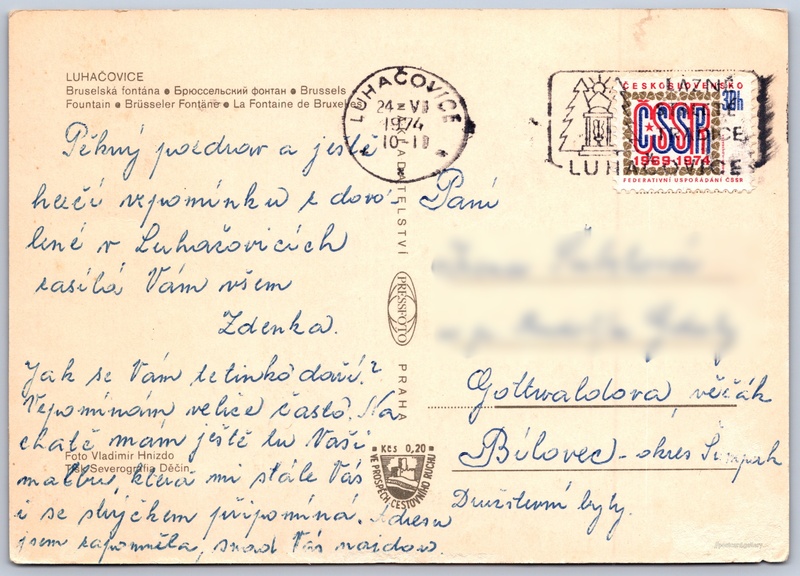 LUHAČOVICE
Bruselská fontána ● Брюссельский фонтан ● Brussels
Fountain ● Brüsseler Fontäne ● La Fontaine de Bruxelles
Pěkný pozdrav a ještě
hezčí vzpomínku z dovo-
lené v Luhačovicích
zasílá Vám všem
Zdenka.
Jak se Vám tetinko daří?
Vzpomínám velice často. Na
chatě mám ještě tu Vaší
malbu, která mi stále Vás
i se strýčkem připomíná. Adresu
jsem zapomněla, snad Vás najdou.
Foto Vladimír Hnízdo
Tisk Severografia Děčín
NAKLADATELSTVÍ
PRESSFOTO
PRAHA
Kčs 0,20
VE PROSPĚCH CESTOVNÍHO RUCHU
LUHAČOVICE
24. VI
1974
10-
LÁZNĚ
TRADICE
LUHAČOVICE
ČESKOSLOVENSKO
30h
ČSSR
1969-1974
FEDERATIVNÍ USPOŘÁDÁNÍ ČSSR
Paní
Gottwaldova
Bílovec - okres
Družstevní byty.